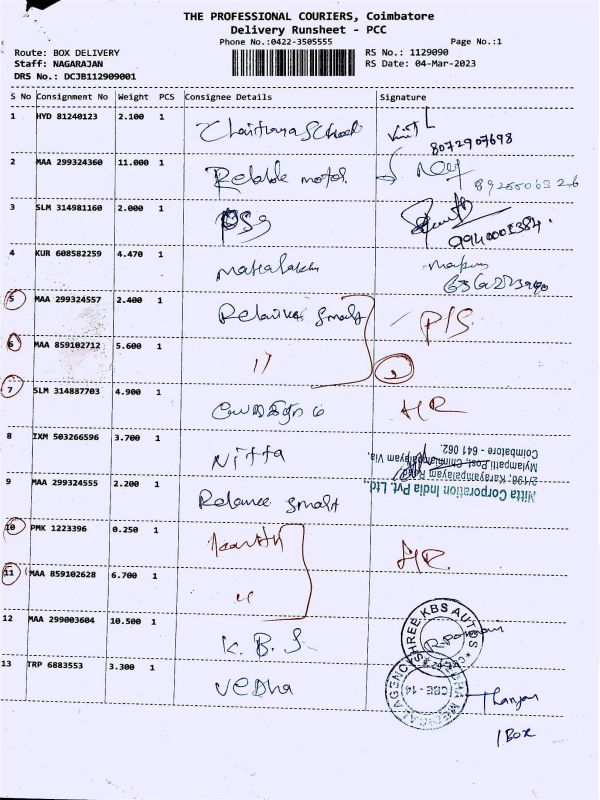 THE PROFESSIONAL COURIERS, Coimbatore
Delivery Runsheet - PCC
Phone No.:0422-3505555 Page No.:1
Route: BOX DELIVERY RS No.: 1129090
Staff: NAGARAJAN RS Date: 04-Mar-2023
DRS No.: DCJB112909001
S No Consignment No Weight PCS Consignee Details Signature
1 HYD 81240123 2.100 1 Chaitanya School
8072907698
2 MAA 299324360 11.000 1 Relable motor
3 SLM 314981160 2.000 1 PSG
4 KUR 608582259 4.470 1 Mahalakshmi
5 MAA 299324557 2.400 1 Reliance Smart P/S
6 MAA 859102712 5.600 1 "
7 SLM 314887703 4.900 1 HR
8 IXM 503266596 3.700 1 Nitta
Nitta Corporation India Pvt. Ltd.,
2/196, Karayampalayam Road
Mylampatti Post, Chinniampalayam Via,
Coimbatore - 641 062.
9 MAA 299324555 2.200 1 Reliance Smart
10 PMK 1223396 0.250 1 HR
11 MAA 859102628 6.700 1 "
12 MAA 299003604 10.500 1 K. B. S.
SHREE KBS AUTOS
13 TRP 6883553 3.300 1 Vedha
VEDHA MEDICAL AGENCY
CBE - 14
1 Box